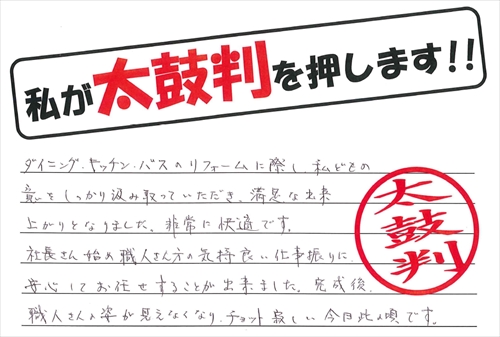 私が太鼓判を押します!!
ダイニング、キッチン、バスのリフォームに際し、私どもの
意をしっかり汲み取っていただき、満足な出来
上がりとなりました。非常に快適です。
社長さん始め職人さん方の気持良い仕事振りに
安心してお任せすることが出来ました。完成後、
職人さんの姿が見えなくなり、チョット寂しい今日此の頃です。
太鼓判